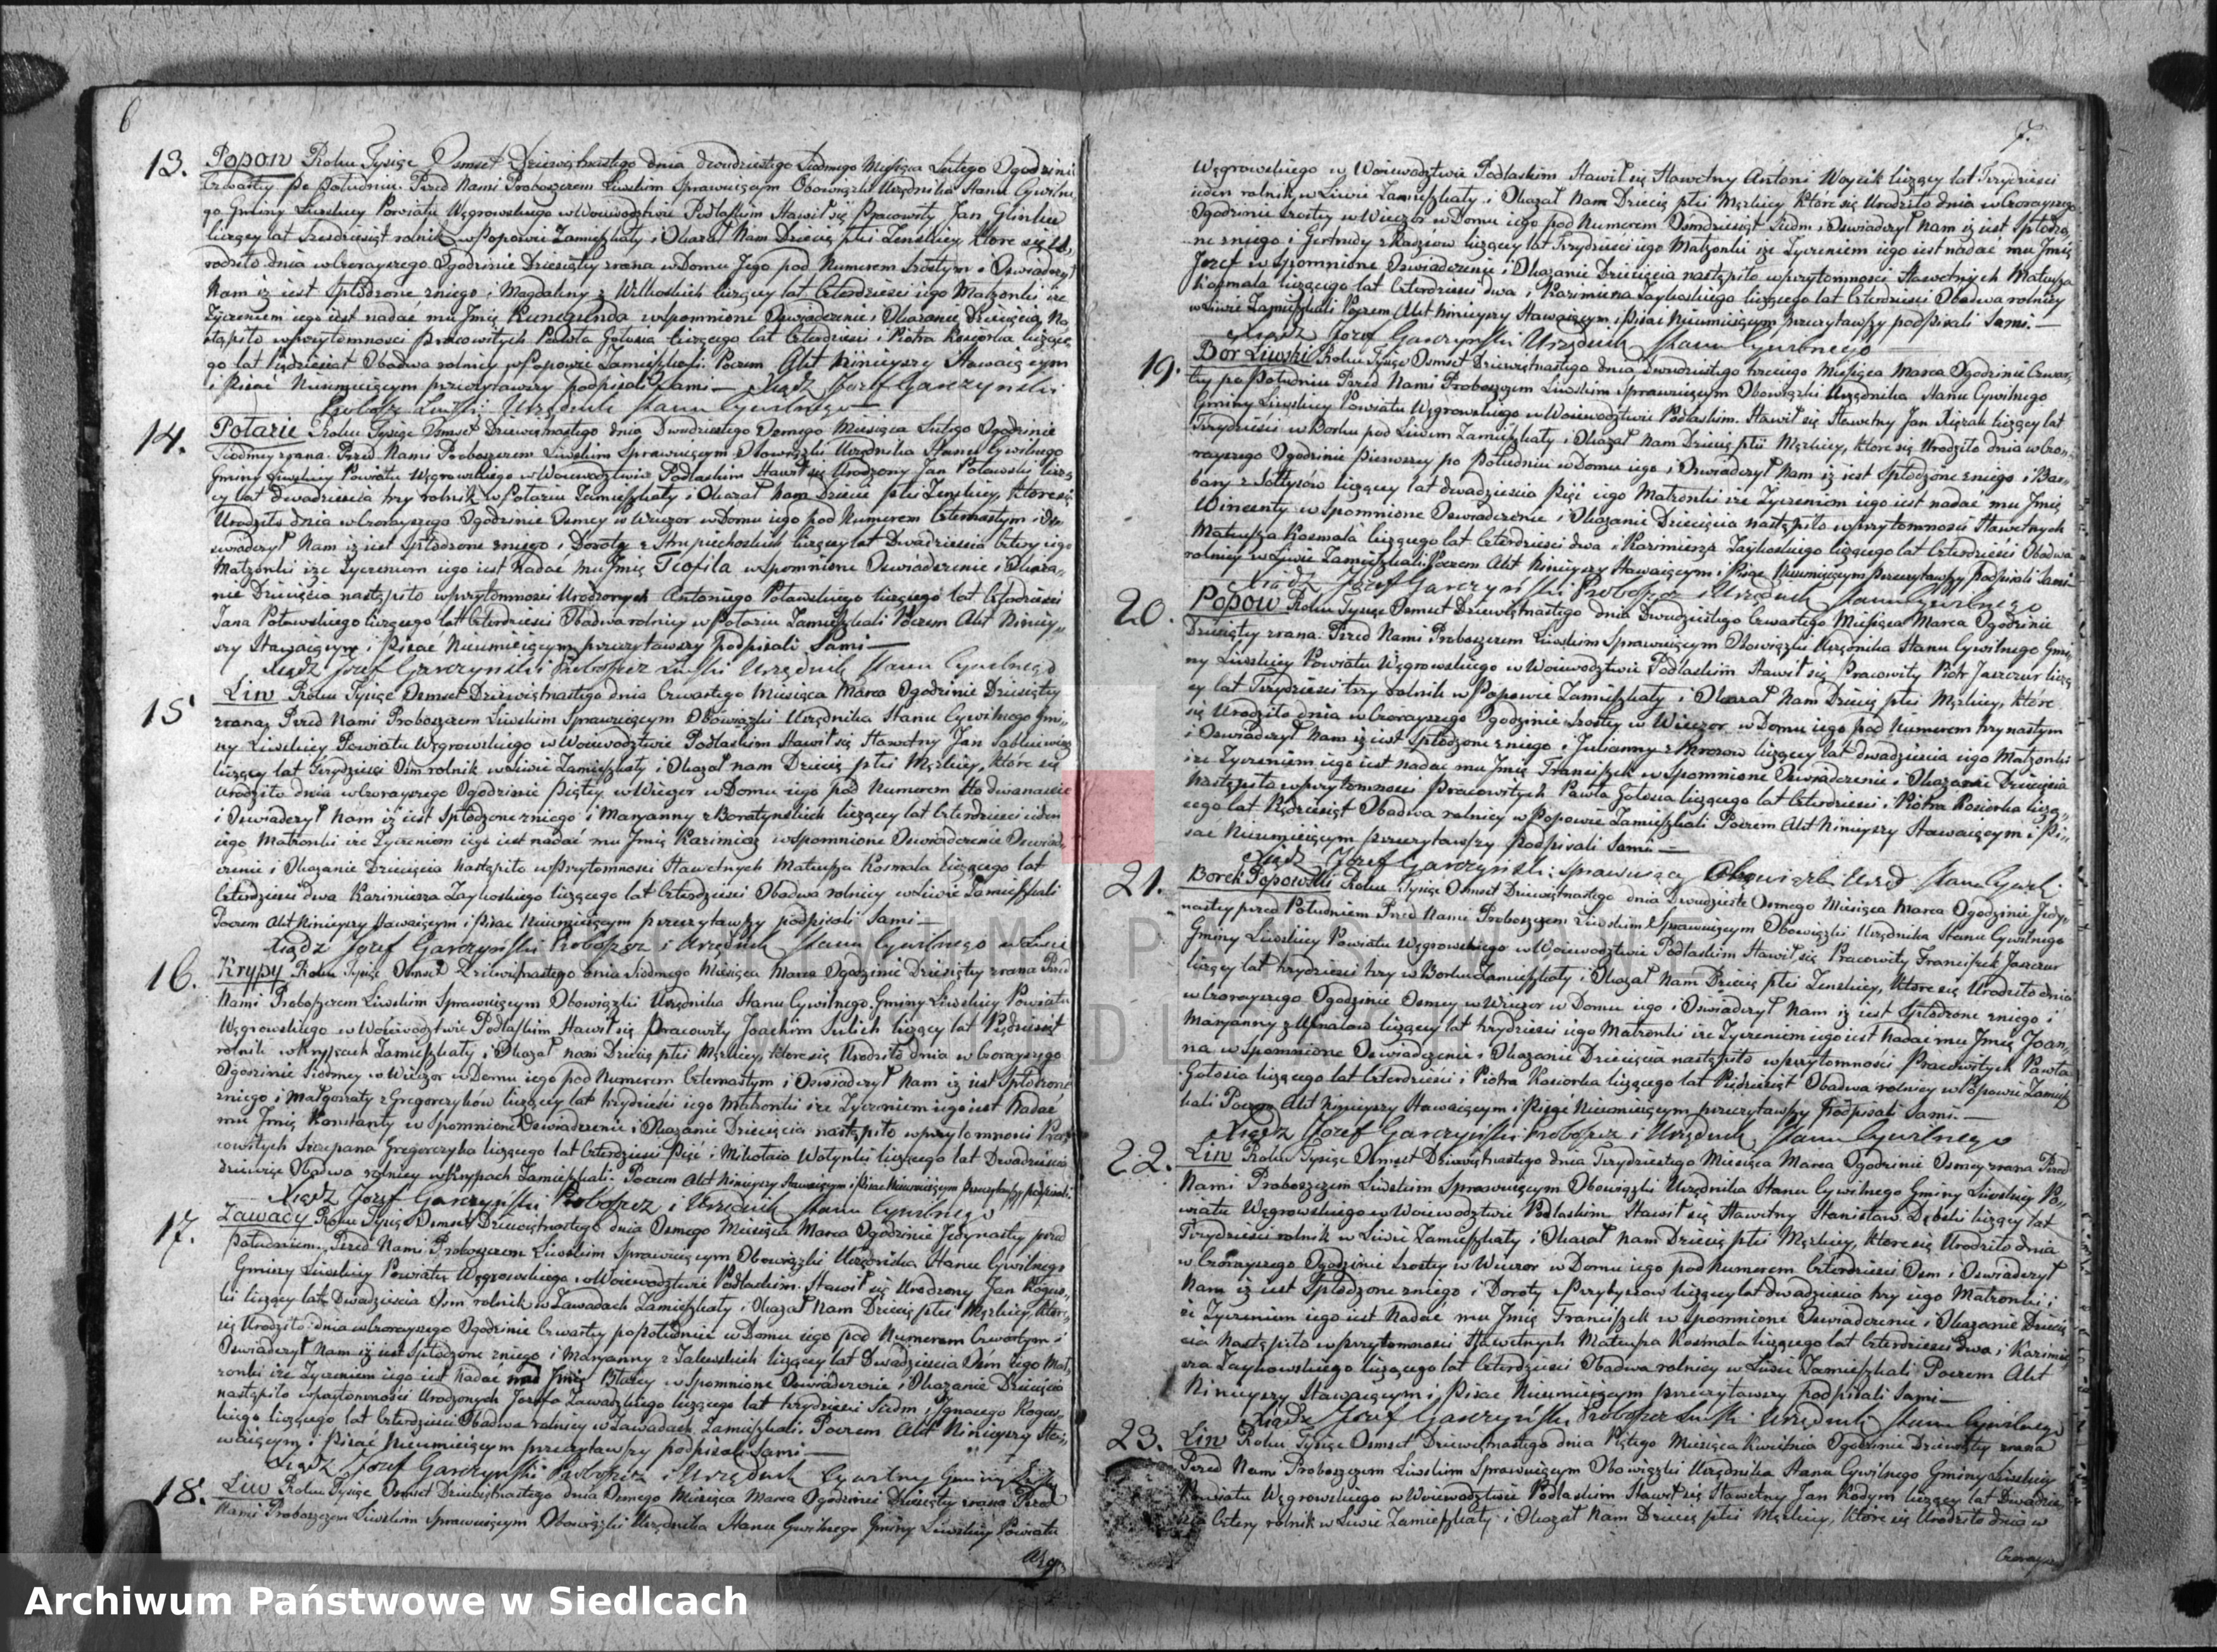 6
13. Popow Roku Tysiąc Osmset Dziewiętnastego dnia dwudziestego Siodmego Miesiąca Lutego Ogodzinie
Czwartey po południu. Przed Nami Proboszczem Liwskim Sprawuiącym Obowiązki Urzędnika Stanu Cywilne
go Gminy Liwskiey Powiatu Węgrowskiego w Woiewodztwie Podlaskim Stawił się Pracowity Jan
liczący lat Szesdziesiąt rolnik w Popowie Zamieszkały i Okazał Nam Dziecię płci Zenskiey, ktore się U
rodziło dnia wczorayszego Ogodzinie Dziesiątey zrana w Domu Jego pod Numerem Szostym i Oswiadczył
Nam iż iest Spłodzone zniego i Magdaleny z Wilkoskich liczącey lat Czterdziesci iego Małżonki iże
Zyczeniem iego iest nadać mu Jmię Kunegunda wspomnione Oswiadczenie i Okazanie Dziecięcia Na
stąpiło wprzytomnosci Pracowitych Pawła Gołosia liczącego lat Czterdziesci i Piotra Kosiorka liczące
go lat Pięćdziesiąt Obadwa rolnicy w Popowie Zamieszkali. Poczem Akt Ninieyszy Stawaiącym
i Pisać Nieumieiącym przeczytawszy podpisali Sami – Xiądz Jozef Garczynski
Proboszcz Liwski Urzędnik Stanu Cywilnego
14. Połazie Roku Tysiąc Osmset Dziewiętnastego dnia Dwudziestego Osmego Miesiąca Lutego Ogodzinie
Siodmey zrana. Przed Nami Proboszczem Liwskim Sprawuiącym Obowiązki Urzędnika Stanu Cywilnego
Gminy Liwskiey Powiatu Węgrowskiego w Woiewodztwie Podlaskim Stawił się Urodzony Jan Poławski liczą
cy lat dwadziescia trzy rolnik w Połaziu Zamieszkały i Okazał Nam Dziecie płci Zenskiey, ktore się
Urodziło dnia wczorayszego Ogodzinie Osmey w Wieczor w Domu iego pod Numerem Czternastym i Os
wiadczył Nam iż iest Spłodzone zniego i Doroty z liczącey lat Dwadziescia Cztery iego
Małzonki iże Zyczeniem iego iest Nadac Mu Jmię Teofila wspomnione Oswiadczenie i Okaza
nie Dziecięcia nastąpiło wprzytomnosci Urodzonych Antoniego Poławskiego liczącego lat Czterdziesci
Jana Poławskiego liczącego lat Czterdziesci Obadwa rolnicy w Połaziu Zamieszkali Poczem Akt Niniey
szy Stawaiącym i Pisać Nieumieiącym przeczytawszy Podpisali Sami –
Xiądz Jozef Garczynski Proboszcz Liwski Urzędnik Stanu Cywilnego
15 Liw Roku Tysiąc Osmset Dziewiętnastego dnia Czwartego Miesiąca Marca Ogodzinie Dziesiątey
zrana Przed Nami Proboszczem Liwskim Sprawuiącym Obowiązki Urzędnika Stanu Cywilnego Gmi
ny Liwskiey Powiatu Węgrowskiego w Woiewodztwie Podlaskim Stawił się Sławetny Jan
liczący lat Trzydziesci Osm rolnik w Liwie Zamieszkały i Okazał nam Dziecię płci Męzkiey, ktore się
Urodziło dnia wczorayszego Ogodzinie Piątey w Wieczor w Domu iego pod Numerem Sto dwanascie
i Oswiadczył Nam iż iest Spłodzone zniego i Maryanny z Boratynskich liczącey lat Czterdziesci ieden
iego Małzonki iże Zyczeniem iego iest nadać mu Jmię Kazimierz wspomnione Oswiadczenie Oswiad
czenie i Okazanie Dziecięcia nastąpiło wPrzytomnosci Sławetnych Mateusza Kosmala liczącego lat
Czterdziesci dwa Kazimierza Zaykoskiego liczącego lat Czterdziesci Obadwa rolnicy w Liwie Zamieszkali
Poczem Akt Ninieyszy Stawaiącym i Pisac Nieumieiącym przeczytawszy podpisali Sami –
Xiądz Jozef Garczynski Proboszcz i Urzędnik Stanu Cywilnego w Liwie
16. Krypy Roku Tysiąc Osmset Dziewiętnastego dnia Siodmego Miesiąca Marca Ogodzinie Dziesiątey zrana Przed
Nami Proboszczem Liwskim Sprawuiącym Obowiązki Urzędnika Stanu Cywilnego Gminy Liwskiey Powiatu
Węgrowskiego w Woiewodztwie Podlaskim Stawił się Pracowity Joachim Sulich liczący lat Pięćdziesiąt
rolnik w Krypach Zamieszkały i Okazał nam Dziecię płci Męzkiey, ktore się Urodziło dnia wczorayszego
Ogodzinie Siodmey w Wieczor w Domu iego pod Numerem Czternastym i Oswiadczył Nam iż iest Spłodzone
zniego i Małgorzaty z Gregorczykow liczącey lat trzydziesci iego Małzonki iże Zyczeniem iego iest Nadać
mu Jmię Konstanty wspomnione Oswiadczenie i Okazanie Dziecięcia nastąpiło wprzytomnosci Pra
cowitych Szczepana Gregorczyka liczącego lat Czterdziesci Pięć i Mikołaia Wołynki liczącego lat Dwadziescia
dziewięc Obadwa rolnicy w Krypach Zamieszkali. Poczem Akt Ninieyszy Stawaiącym i Pisac Nieumieiącym przeczytawszy podpisali.
Xiądz Jozef Garczynski Proboszcz i Urzędnik Stanu Cywilnego
17. Zawady Roku Tysiąc Osmset Dziewiętnastego dnia Osmego Miesiąca Marca Ogodzinie Jedynastey przed
Południem. Przed Nami Proboszczem Liwskim Sprawuiącym Obowiązki Urzędnika Stanu Cywilnego
Gminy Liwskiey Powiatu Węgrowskiego w Woiewodztwie Podlaskim. Stawił się Urodzony Jan
ki liczący lat Dwadziescia Osm rolnik w Zawadach Zamieszkały i Okazał Nam Dziecię płci Męzkiey, ktore
się Urodziło dnia wczorayszego Ogodzinie Czwartey popołudniu w Domu iego pod Numerem Czwartym i
Oswiadczył Nam iż iest Spłodzone zniego i Maryanny z Zalewskich liczącey lat Dwadziescia Osm iego Mał
zonki iże Zyczeniem iego iest Nadać Jmię Błazey wspomnione Oswiadczenie i Okazanie Dziecięcia
nastąpiło wprzytomnosci Urodzonych Jozefa Zawadzkiego liczącego lat trzydziesci Siedm i Jgnacego
kiego liczącego lat Czterdziesci Obadwa rolnicy w Zawadach Zamieszkali. Poczem Akt Ninieyszy Sta
waiącym i Pisać Nieumieiącym przeczytawszy podpisali Sami –
Xiądz Jozef Garczynski Proboszcz i Urzędnik Cywilny Gminy
18. Liw Roku Tysiąc Osmset Dziewiętnastego dnia Osmego Miesiąca Marca Ogodzinie Dziesiątey zrana Przed
Nami Proboszczem Liwskim Sprawuiącym Obowiązki Urzędnika Stanu Cywilnego Gminy Liwskiey Powiatu
Węgr
7.
Węgrowskiego w Woiewodztwie Podlaskim Stawił się Sławetny Antoni Woycik liczący lat Trzydziesci
ieden rolnik w Liwie Zamieszkały i Okazał Nam Dziecię płci Męzkiey ktore się Urodziło dnia wczorayszego
Ogodzinie Szostey w Wieczor w Domu iego pod Numerem Osmdziesiąt Siedm i Oswiadczył Nam iż iest Spłodzo
ne zniego i Gertrudy z Radziow liczącey lat Trzydziesci iego Małzonki iże Zyczeniem iego iest nadać mu Jmię
Jozef wspomnione Oswiadczenie i Okazanie Dziecięcia nastąpiło wprzytomnosci Sławetnych Mateusza
Kosmala liczącego lat Czterdziesci dwa i Kazimierza Zaykoskiego liczącego lat Czterdziesci Obadwa rolnicy
w Liwie Zamieszkali Poczem Akt Ninieyszy Stawaiącym i Pisac Nieumieiącym przeczytawszy podpisali Sami. –
Xiądz Jozef Garczynski Urzędnik Stanu Cywilnego
19. Bor Liwski Roku Tysiąc Osmset Dziewiętnastego dnia Dwudziestego trzeciego Miesiąca Marca Ogodzinie Czwar
tey po Południu Przed Nami Proboszczem Liwskim Sprawuiącym Obowiązki Urzędnika Stanu Cywilnego
Gminy Liwskiey Powiatu Węgrowskiego w Woiewodztwie Podlaskim. Stawił się Sławetny Jan liczący lat
Trzydziesci w Borku pod Liwem Zamieszkały i Okazał Nam Dziecię płci Męzkiey, ktore się Urodziło dnia wczo
rayszego Ogodzinie pierwszey po Południu w Domu iego i Oswiadczył Nam iż iest Spłodzone zniego i Bar
bary z Sołtysow liczącey lat dwadziescia Pięć iego Małzonki iże Zyczeniem iego iest nadać mu Jmię
Wincenty wspomnione Oswiadczenie i Okazanie Dziecięcia nastąpiło wprzytomnosci Sławetnych
Mateusza Kosmala liczącego lat Czterdziesci dwa i Kazimierza Zaykoskiego liczącego lat Czterdziesci Obadwa
rolnicy w Liwie Zamieszkali. Poczem Akt Ninieyszy Stawaiącym i Pisac Nieumieiącym przeczytawszy podpisali Sami
Xiądz Jozef Garczynski Proboszcz i Urzędnik Stanu Cywilnego
20. Popow Roku Tysiąc Osmset Dziewiętnastego dnia Dwudziestego Czwartego Miesiąca Marca Ogodzinie
Dziesiątey zrana. Przed Nami Proboszczem Liwskim Sprawuiącym Obowiązki Urzędnika Stanu Cywilnego Gmi
ny Liwskiey Powiatu Węgrowskiego w Woiewodztwie Podlaskim Stawił się Pracowity Piotr Jaszczur liczą
cy lat Trzydziesci trzy rolnik w Popowie Zamieszkały i Okazał Nam Dziecię płci Męzkiey, ktore
się Urodziło dnia wczorayszego Ogodzinie Szostey w Wieczor w Domu iego pod Numerem trzynastym
i Oswiadczył Nam iż iest Spłodzone zniego i Julianny z Mrozow liczącey lat dwadziescia iego Małzonki
iże Zyczeniem iego iest nadać mu Jmię Franciszek wspomnione Oswiadczenie i Okazanie Dziecięcia
Nastąpiło wprzytomnosci Pracowitych Pawła Gołosia liczącego lat Czterdziesci i Piotra Kosiorka liczą
cego lat Pięćdziesiąt Obadwa rolnicy w Popowie Zamieszkali Poczem Akt Ninieyszy Stawaiącym i Pi
sac Nieumieiącym przeczytawszy Podpisali Sami –
Xiądz Jozef Garczynski Sprawuiący Obowiązki Urzęd Stanu Cywil:
21. Borek Popowski Roku Tysiąc Osmset Dziewiętnastego dnia Dwudzieste Osmego Miesiąca Marca Ogodzinie Jedy
nastey przed Południem Przed Nami Proboszczem Liwskim Sprawuiącym Obowiązki Urzędnika Stanu Cywilnego
Gminy Liwskiey Powiatu Węgrowskiego w Woiewodztwie Podlaskim Stawił się Pracowity Franciszek Jaszczur
liczący lat trzydziesci trzy w Borku Zamieszkały i Okazał Nam Dziecię płci Zenskiey, ktore się Urodziło dnia
wczorayszego Ogodzinie Osmey w Wieczor w Domu iego i Oswiadczył Nam iż iest Spłodzone zniego i
Maryanny z liczącey lat trzydziesci iego Małzonki iże Zyczeniem iego iest Nadac mu Jmię Joan
na wspomnione Oswiadczenie i Okazanie Dziecięcia nastąpiło wprzytomności Pracowitych Pawła
Gołosia liczącego lat Czterdziesci i Piotra Kosiorka liczącego lat Pięćdziesiąt Obadwa rolnicy w Popowie Zamiesz
kali Poczem Akt Ninieyszy Stawaiącym i Pisać Nieumieiącym przeczytawszy Podpisali Sami. –
Xiądz Jozef Garczynski Proboszcz i Urzędnik Stanu Cywilnego
22. Liw Roku Tysiąc Osmset Dziewiętnastego dnia Trzydziestego Miesiąca Marca Ogodzinie Osmey zrana Przed
Nami Proboszczem Liwskim Sprawuiącym Obowiązki Urzędnika Stanu Cywilnego Gminy Liwskiey Po
wiatu Węgrowskiego w Woiewodztwie Podlaskim Stawił się Sławetny Stanisław Dębski liczący lat
Trzydziesci rolnik w Liwie Zamieszkały i Okazał Nam Dziecię płci Męzkiey, ktore się Urodziło dnia
wczorayszego Ogodzinie Szostey w Wieczor w Domu iego pod Numerem Czterdziesci Osm i Oswiadczył
Nam iż iest Spłodzone zniego i Doroty z liczącey lat dwadziescia trzy iego Małzonki i
że Zyczeniem iego iest Nadać mu Jmię Franciszek wspomnione Oswiadczenie i Okazanie Dziecię
cia Nastąpiło wprzytomnosci Sławetnych Mateusza Kosmala liczącego lat Czterdziesci dwa i Kazimie
rza Zaykowskiego liczącego lat Czterdziesci Obadwa rolnicy w Liwie Zamieszkali Poczem Akt
Ninieyszy Stawaiącym i Pisac Nieumieiącym przeczytawszy podpisali Sami –
Xiądz Jozef Garczynski Proboszcz Liwski Urzędnik Stanu Cywilnego
23. Liw Roku Tysiąc Osmset Dziewiętnastego dnia Piątego Miesiąca Kwietnia Ogodzinie Dziewiątey zrana
Przed Nami Proboszczem Liwskim Sprawuiącym Obowiązki Urzędnika Stanu Cywilnego Gminy Liwskiey
Powiatu Węgrowskiego w Woiewodztwie Podlaskim Stawił się Sławetny Jan Kodym liczący lat Dwadzie
scia Cztery rolnik w Liwie Zamieszkały i Okazał Nam Dziecię płci Męzkiey, ktore się Urodziło dnia w
Czorayszego
ARCHIWUM PAŃSTWOWE
W SIEDLCACH
Archiwum Państwowe w Siedlcach